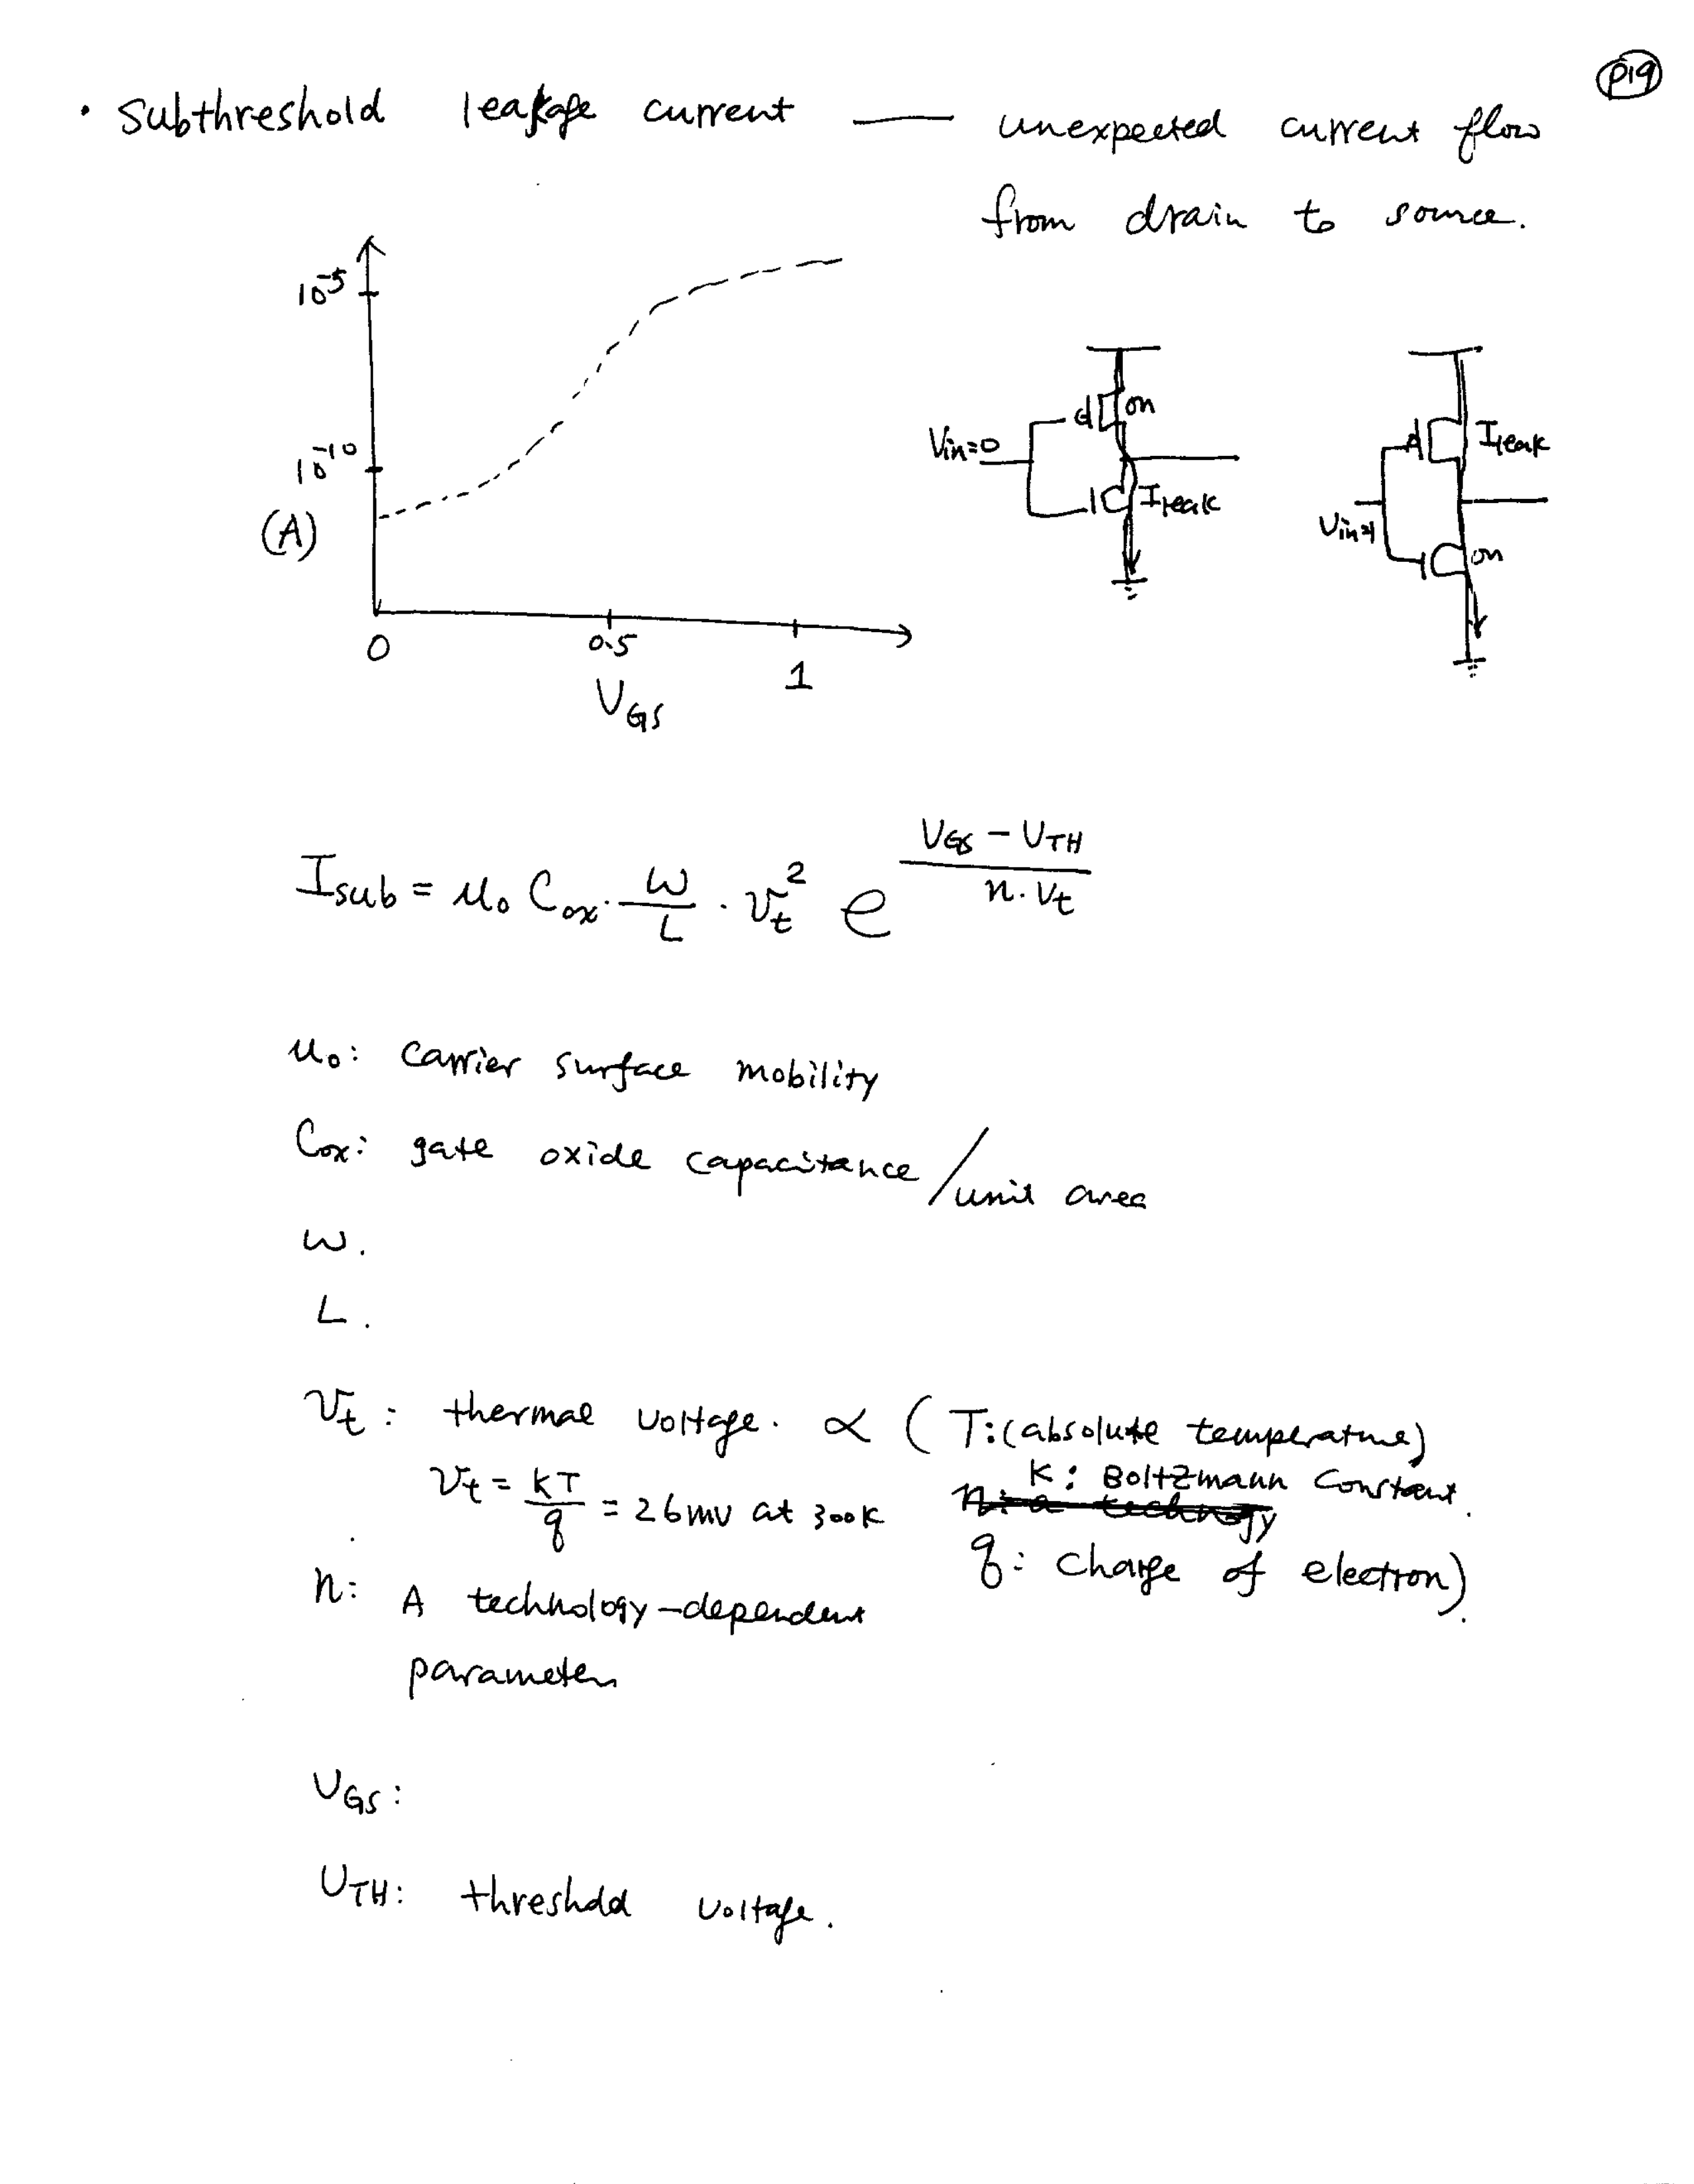 P19
• Subthreshold leakage current — unexpected current flow
from drain to source.
10^-5
10^-10
(A)
0 0.5 1
V_GS
Vin=0 on
I_leak
I_leak
Vin=1 on
I_sub = μ₀ C_ox · W/L · v_t² e^((V_GS − V_TH)/(n·v_t))
μ₀: carrier surface mobility
C_ox: gate oxide capacitance/unit area
W.
L.
v_t: thermal voltage. ∝ (T:(absolute temperature)
K: Boltzmann constant.
v_t = kT/q = 26mV at 300K
n: a technology
q: charge of electron).
n: A technology-dependent
parameter
V_GS:
V_TH: threshold voltage.